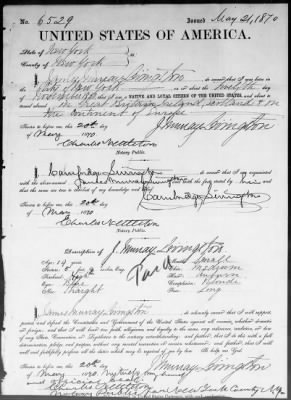 No. 6529 Issued May 21, 1870
UNITED STATES OF AMERICA.
State of New York
County of New York
I, James Murray Livingston do swear that I was born in
the City of New York on the twelfth day
of November that I am a NATIVE AND LOYAL CITIZEN OF THE UNITED STATES, and about to
travel in Great Britain, Ireland, and on
the Continent of Europe
Sworn to before me, this 20th day
of May 1870
J Murray Livingston
Charles Nettleton
Notary Public.
I, Cambridge Livingston do swear that I am acquainted
with the above-named James Murray Livingston and with the facts stated by him
and that the same are true to the best of my knowledge and belief.
Sworn to before me, this 20th day
of May 1870
Cambridge Livingston
Charles Nettleton
Notary Public.
Description of J. Murray Livingston
Age: 19 years
Mouth: Small
Stature: 5 feet inches, Eng.
Chin: Medium
Forehead: High
Hair: Auburn
Eyes: Blue
Complexion: Blonde
Nose: Straight
Face: Long
Paid
I, James Murray Livingston do solemnly swear that I will support,
protect and defend the Constitution and Government of the United States against all enemies, whether domestic
or foreign; and that I will bear true faith, allegiance and loyalty to the same, any ordinance, resolution or law
of any State Convention or Legislature to the contrary notwithstanding; and further, that I do this with a full
determination, pledge and purpose, without any mental reservation or evasion whatsoever; and further, that I will
well and faithfully perform all the duties which may be required of me by law. So help me God.
Sworn to before me, this 20th day
of May 1870
J Murray Livingston
official seal
Charles Nettleton
Notary Public New York County N.Y.